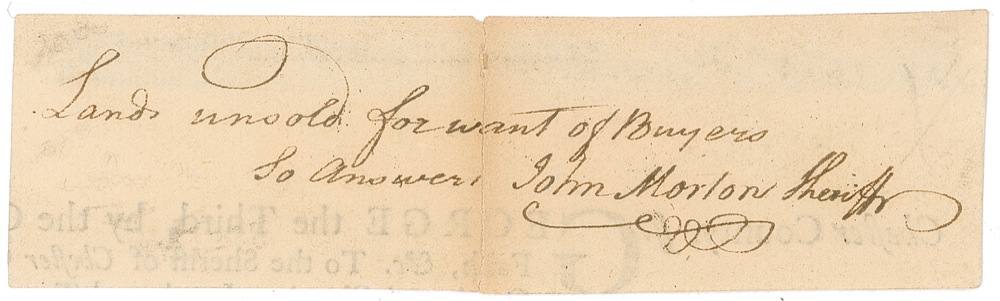 Lands unsold for want of Buyers
So Answers John Morton Sheriff
Chester Coun
GEORGE the Third, by the G
Faith, &c. To the Sheriff of Chester